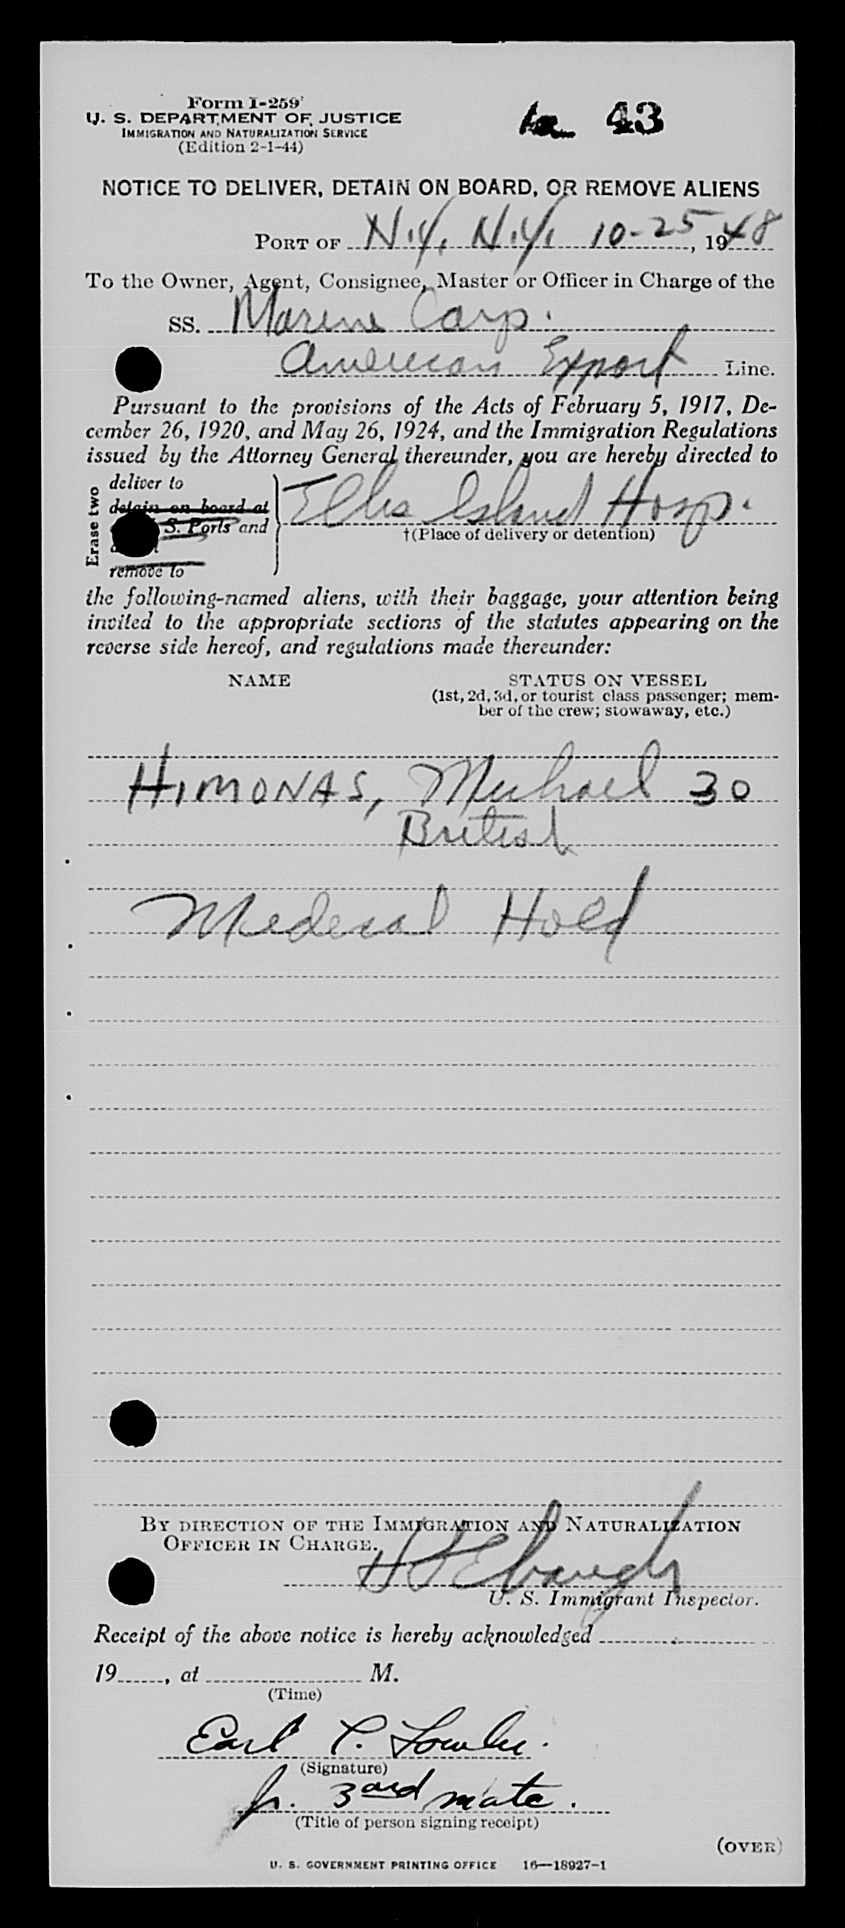 Form I-259
U. S. DEPARTMENT OF JUSTICE
IMMIGRATION AND NATURALIZATION SERVICE
(Edition 2-1-44)
43
NOTICE TO DELIVER, DETAIN ON BOARD, OR REMOVE ALIENS
PORT OF N.Y. N.Y. 10-25, 1948
To the Owner, Agent, Consignee, Master or Officer in Charge of the
SS. Marine Carp.
American Export Line.
Pursuant to the provisions of the Acts of February 5, 1917, De-
cember 26, 1920, and May 26, 1924, and the Immigration Regulations
issued by the Attorney General thereunder, you are hereby directed to
Erase two
deliver to
detain on board at
S. Ports and
remove to
Ellis Island Hosp.
†(Place of delivery or detention)
the following-named aliens, with their baggage, your attention being
invited to the appropriate sections of the statutes appearing on the
reverse side hereof, and regulations made thereunder:
NAME STATUS ON VESSEL
(1st, 2d, 3d, or tourist class passenger; mem-
ber of the crew; stowaway, etc.)
HIMONAS, Michael 30
British
Medical Hold
BY DIRECTION OF THE IMMIGRATION AND NATURALIZATION
OFFICER IN CHARGE.
U. S. Immigrant Inspector.
Receipt of the above notice is hereby acknowledged
19, at M.
(Time)
Earl
(Signature)
Jr. 3rd mate.
(Title of person signing receipt)
(OVER)
U. S. GOVERNMENT PRINTING OFFICE 16—18927-1